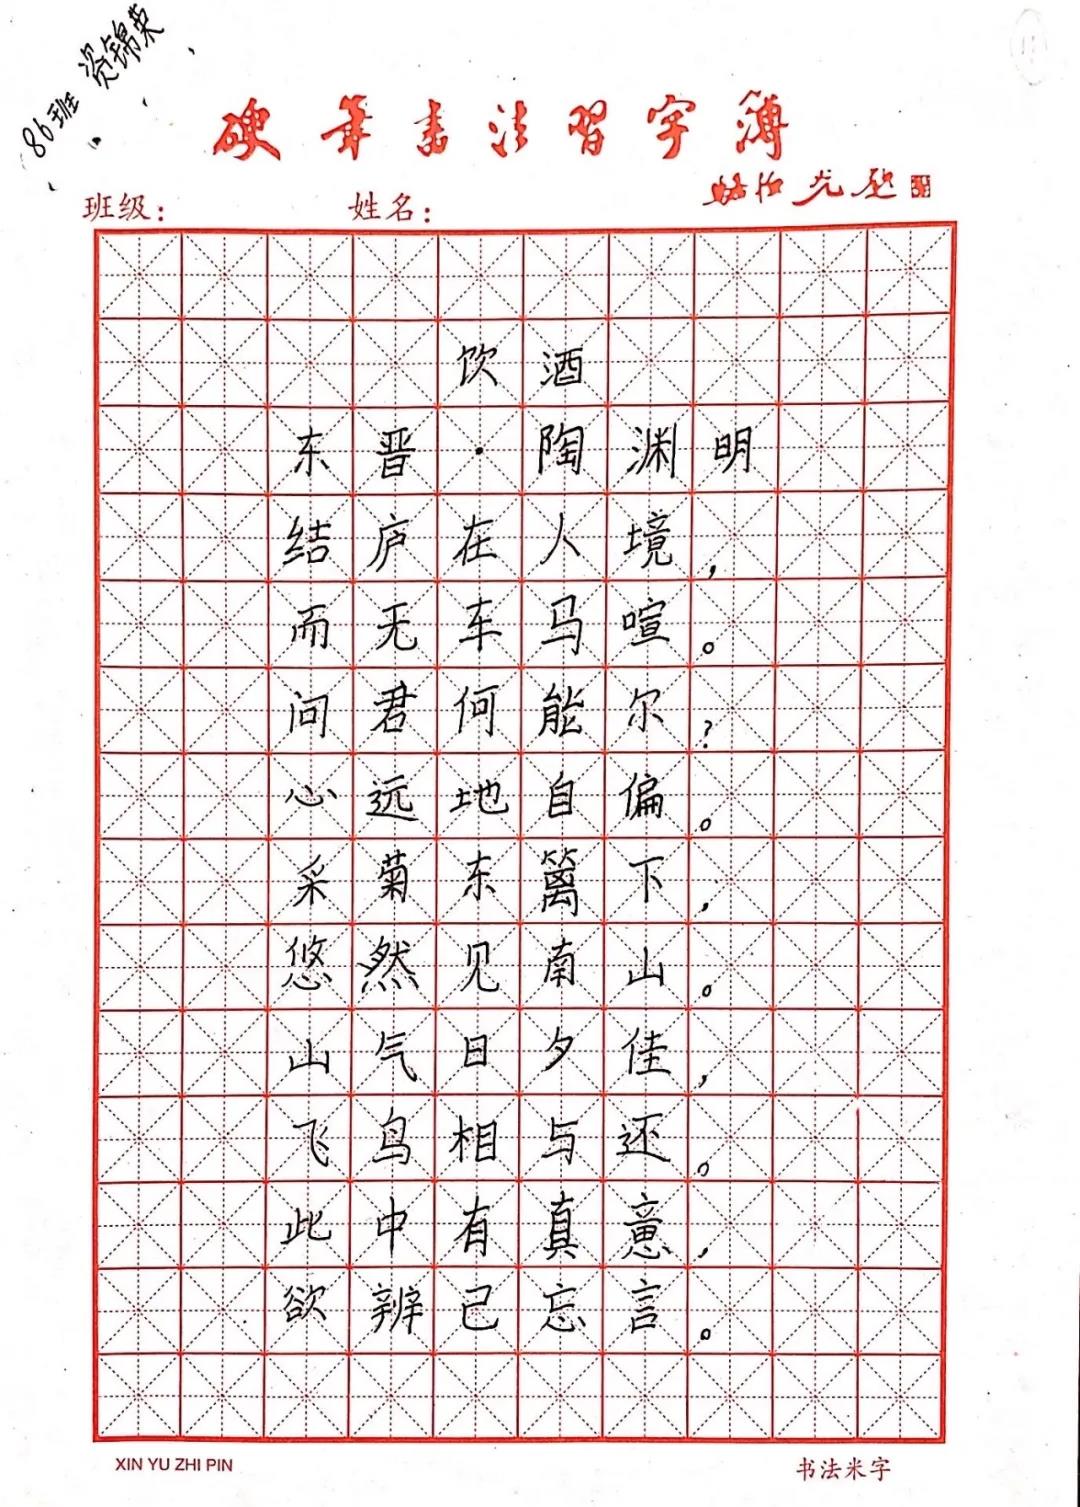 86班 资锦英
硬笔书法习字簿
班级： 姓名：
饮酒
东晋·陶渊明
结庐在人境，
而无车马喧。
问君何能尔？
心远地自偏。
采菊东篱下，
悠然见南山。
山气日夕佳，
飞鸟相与还。
此中有真意，
欲辨已忘言。
XIN YU ZHI PIN 书法米字